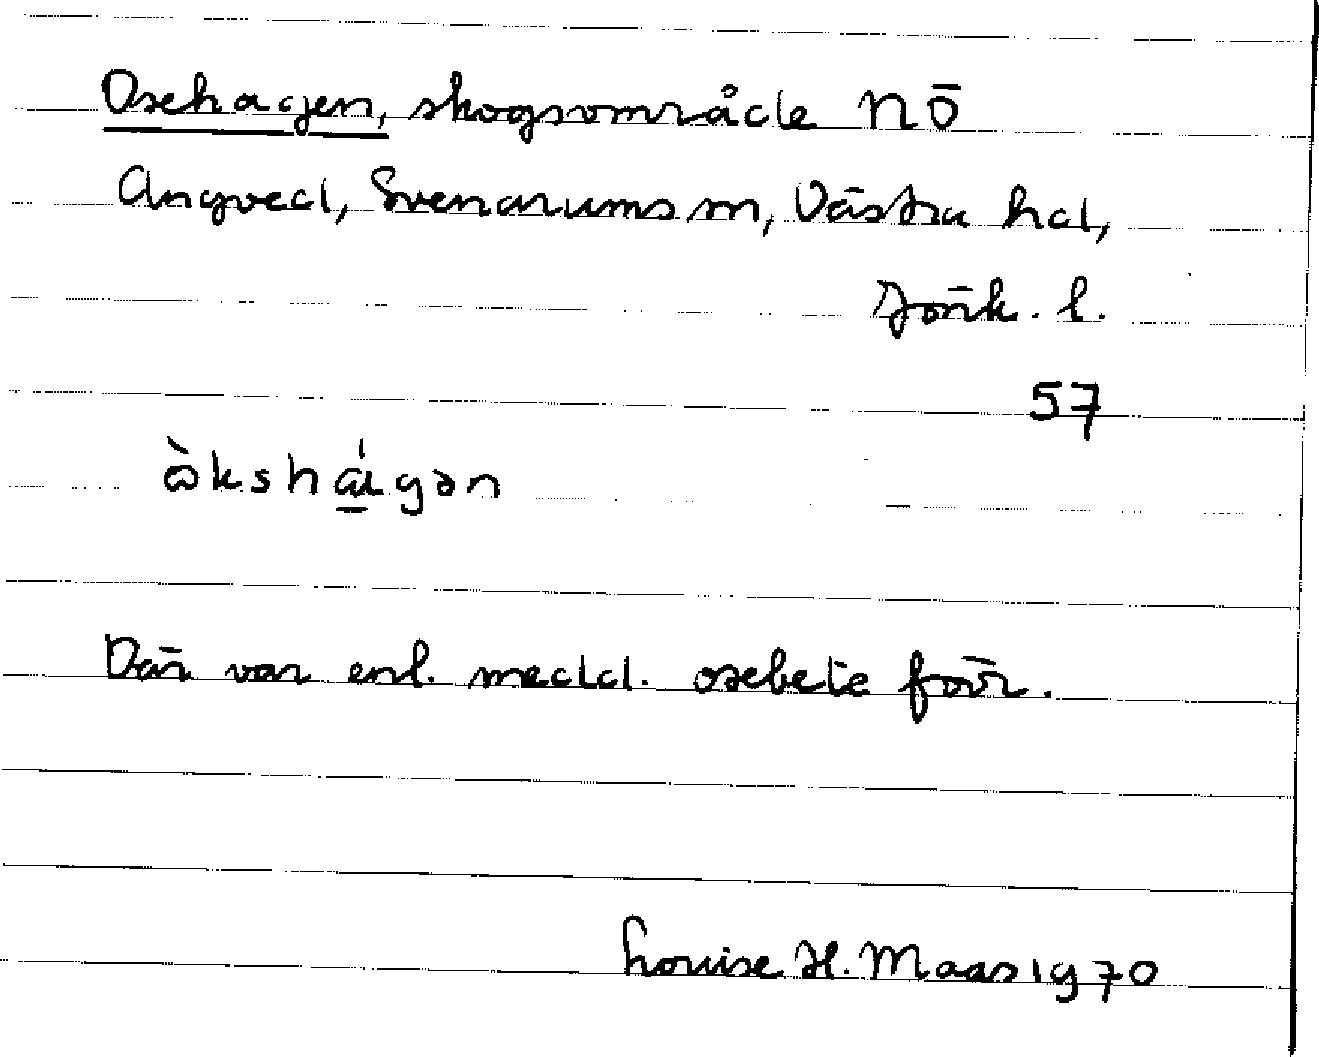 Oxehagen, skogsområde NÖ
Angved, Svenarums sn, Västra hd,
Jönk. l.
57
Där var enl. meddel. oxebete förr.
Louise H. Maas 1970